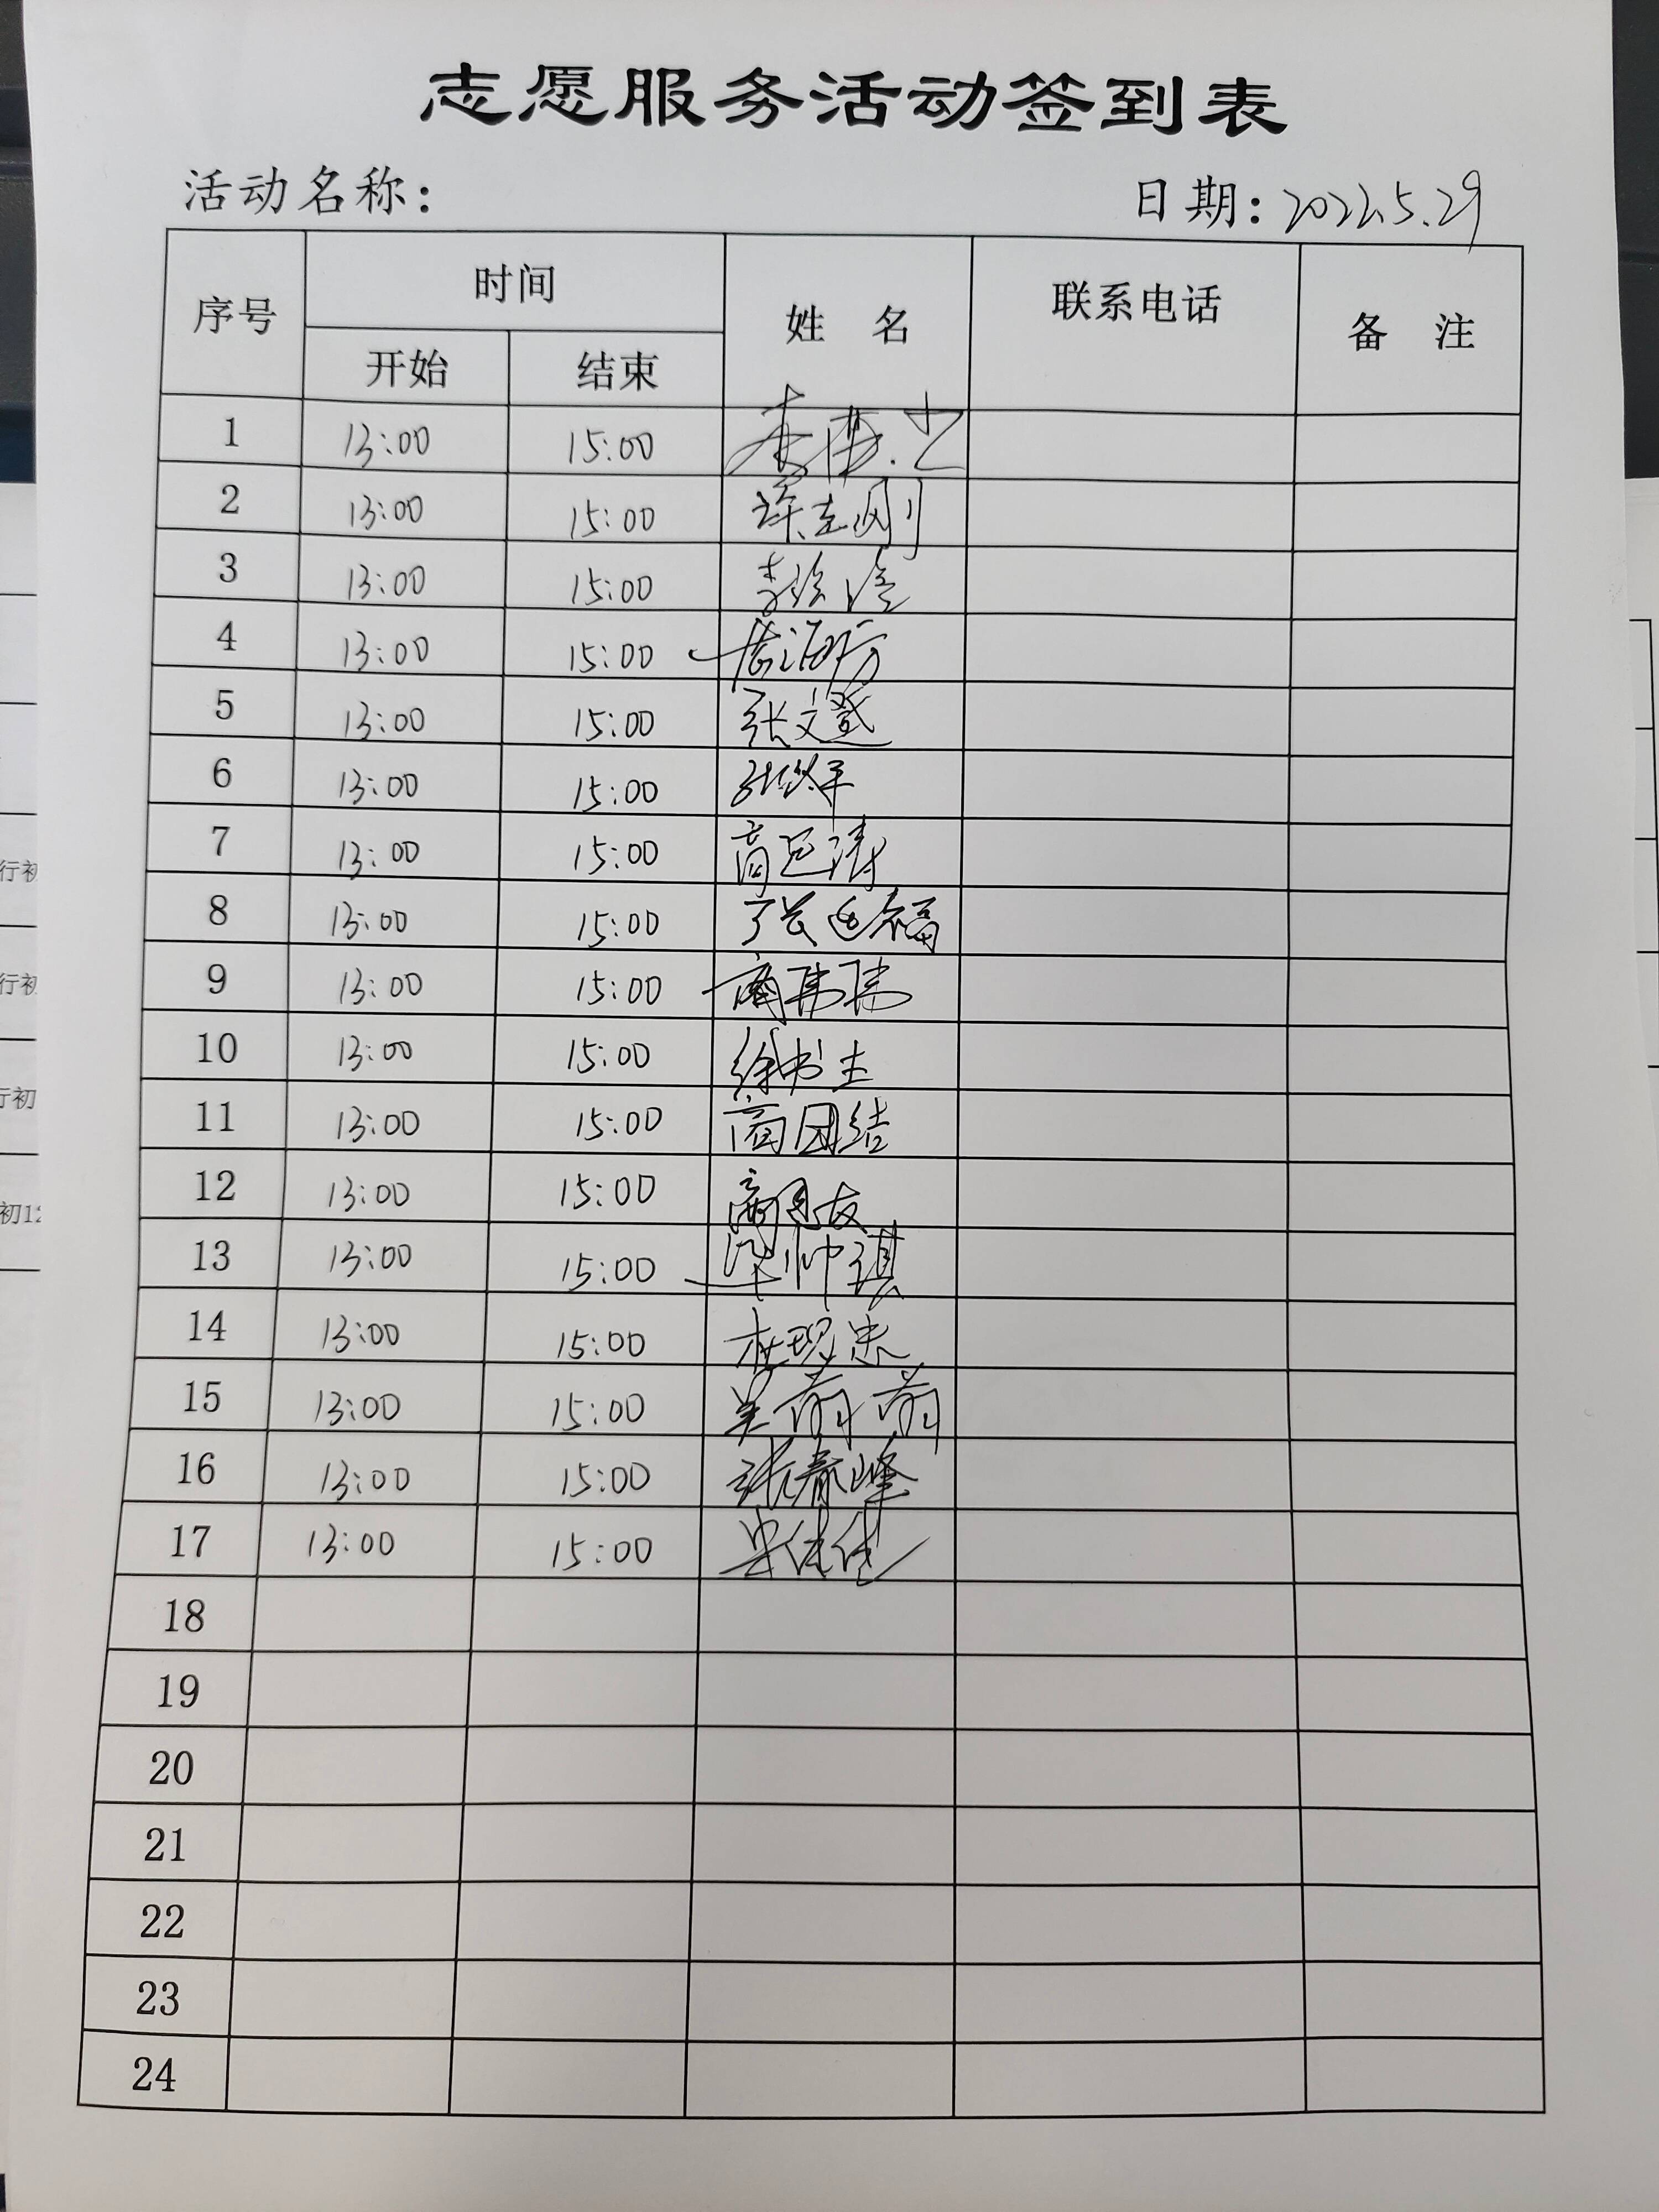 志愿服务活动签到表
活动名称： 日期：2022.5.29
序号 时间 姓 名 联系电话 备 注
开始 结束
1 13:00 15:00
2 13:00 15:00
3 13:00 15:00
4 13:00 15:00
5 13:00 15:00
6 13:00 15:00
7 13:00 15:00
8 13:00 15:00
9 13:00 15:00 商伟伟
10 13:00 15:00
11 13:00 15:00 商团结
12 13:00 15:00
13 13:00 15:00 梁帅琪
14 13:00 15:00 杜现忠
15 13:00 15:00 吴前前
16 13:00 15:00 张春峰
17 13:00 15:00
18
19
20
21
22
23
24
行初
行初
行初
初12